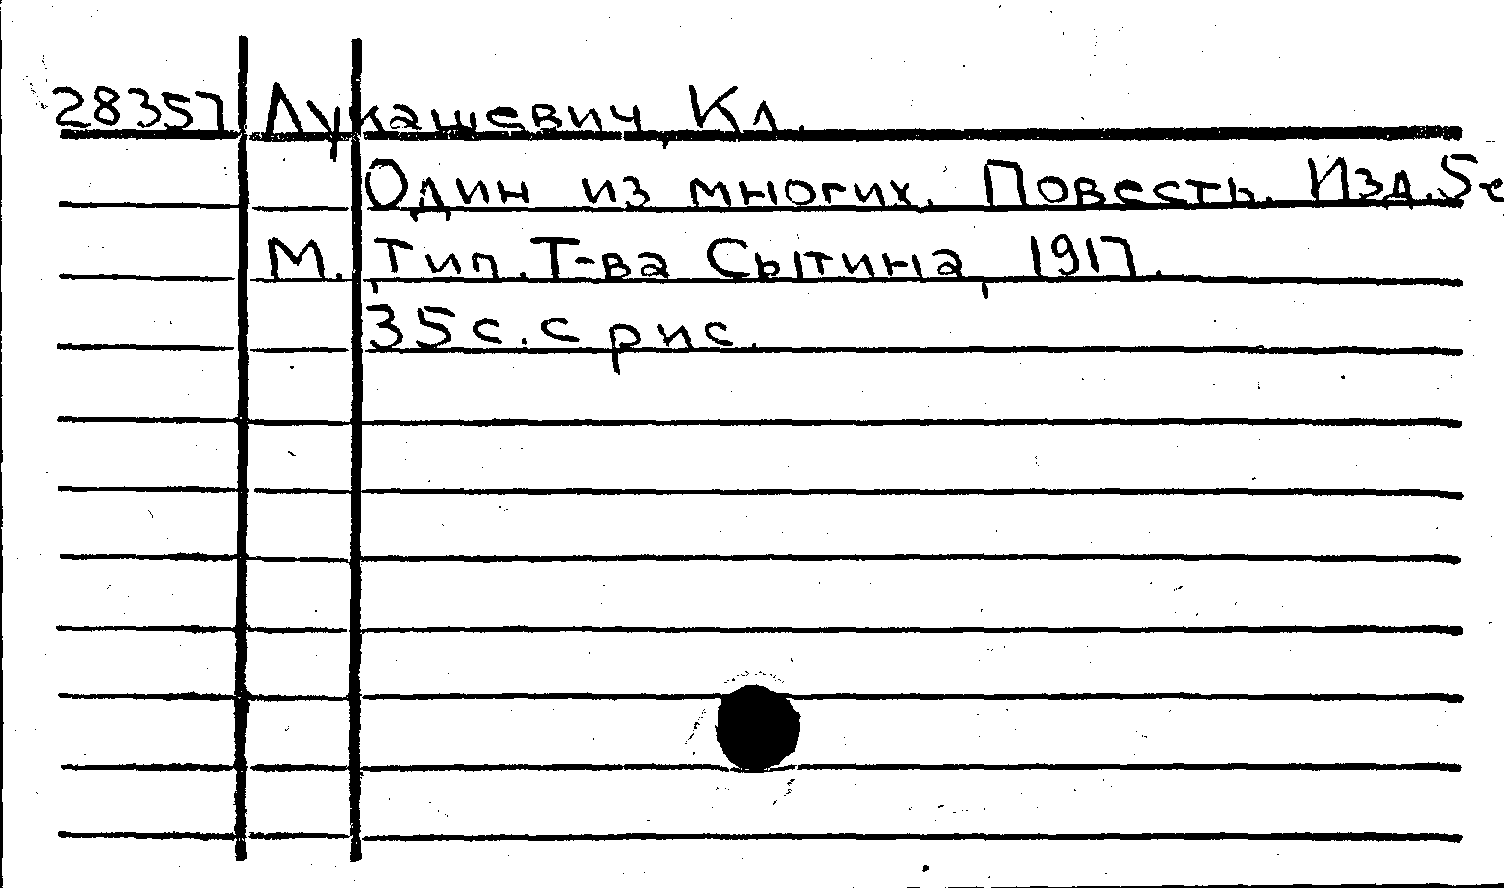 28357 Лукашевич, Кл.
Один из многих. Повесть. Изд.5-е
М., Тип. Т-ва Сытина, 1917.
35 с. с рис.